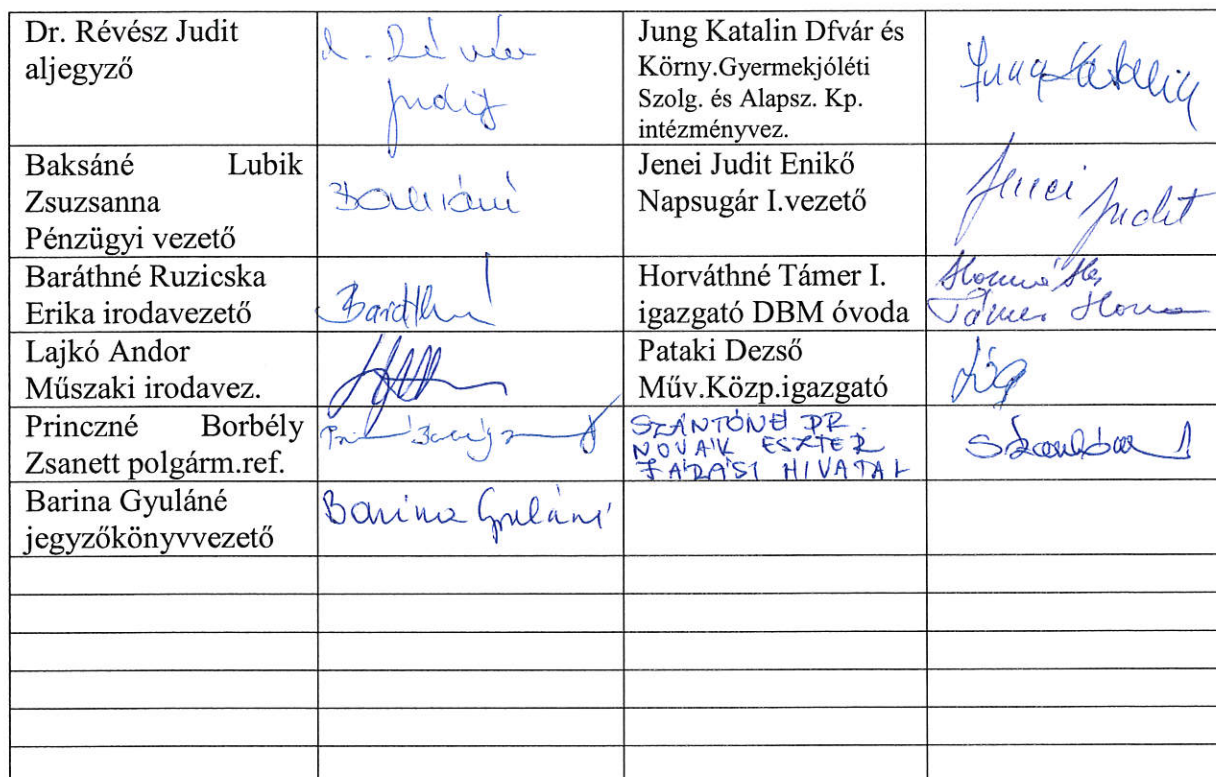 Dr. Révész Judit
aljegyző
Judit
Jung Katalin Dfvár és
Körny.Gyermekjóléti
Szolg. és Alapsz. Kp.
intézményvez.
Jung Katalin
Baksáné Lubik
Zsuzsanna
Pénzügyi vezető
Jenei Judit Enikő
Napsugár I.vezető
Jenei Judit
Baráthné Ruzicska
Erika irodavezető
Baráthné
Horváthné Támer I.
igazgató DBM óvoda
Horváthné
Támer Ilona
Lajkó Andor
Műszaki irodavez.
Pataki Dezső
Műv.Közp.igazgató
Princzné Borbély
Zsanett polgárm.ref.
SZÁNTÓNÉ DR.
NOVÁK ESZTER
JÁRÁSI HIVATAL
Barina Gyuláné
jegyzőkönyvvezető
Barina Gyuláné